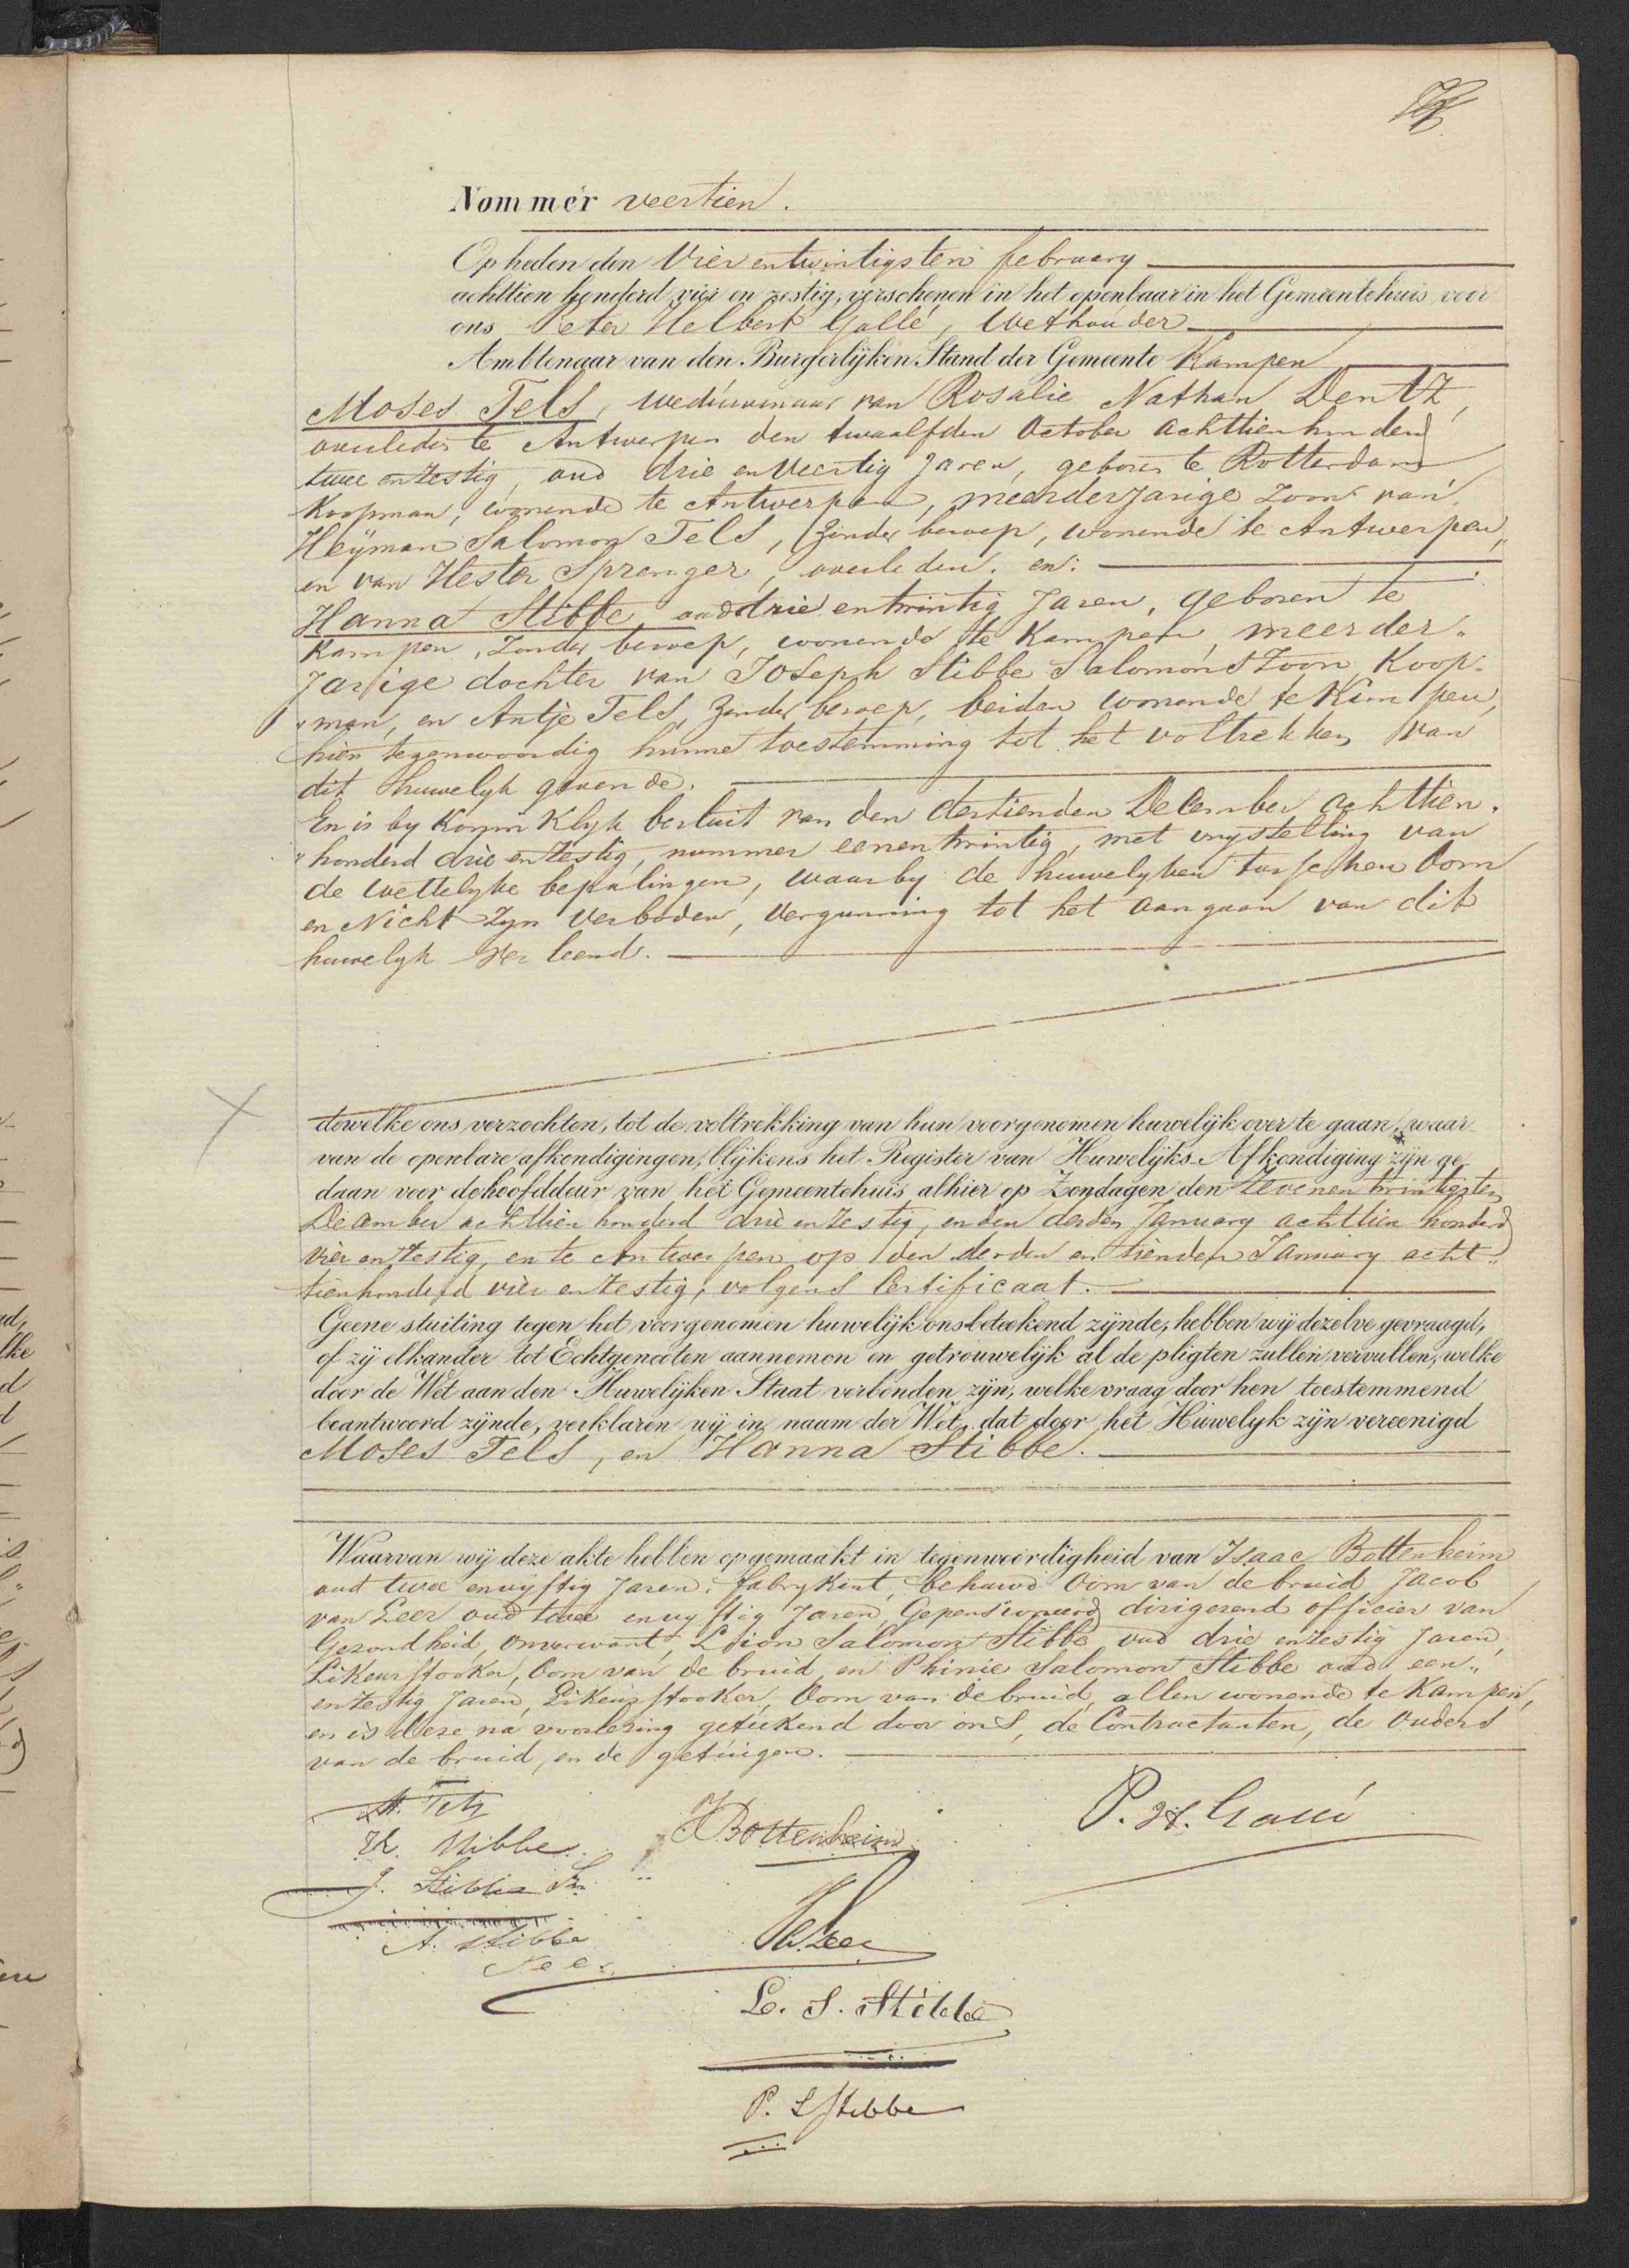 Nommer veertien.
Op heden den Vier entwintigsten february
achttien honderd vier en zestig, verschenen in het openbaar in het Gemeentehuis voor
ons Peter Helbert Gallé, Wethouder
Ambtenaar van den Burgerlijken Stand der Gemeente Kampen
Moses Tels, weduwenaar van Rosalie Nathan Dentz,
overleden te Antwerpen den twaalfden October achttienhonderd
twee en zestig, oud drie en veertig Jaren, geboren te Rotterdam
Koopman, wonende te Antwerpen, meerderjarige Zoon van
Heyman Salomon Tels, Zonder beroep, wonende te Antwerpen,
en van Hester Sprenger, overleden. en:
Hanna Stibbe, oud drie entwintig Jaren, geboren te
Kampen, Zonder beroep, wonende te Kampen meerder„
Jarige dochter van Joseph Stibbe Salomons Zoon, Koop„
„man, en Antje Tels, Zonder beroep, beiden wonende te Kampen,
hier tegenwoordig hunne toestemming tot het voltrekken van
dit huwelyk gevende.
En is by Koninklyk besluit van den dertienden December achttien„
„honderd drie en zestig, nummer eenentwintig, met vrystelling van
de wettelyke bepalingen, waarby de huwelyken tusschen Oom
en Nicht zyn verboden, vergunning tot het aangaan van dit
huwelyk verleend.
dewelke ons verzochten, tot de voltrekking van hun voorgenomen huwelijk over te gaan, waar
van de openbare afkondigingen, blijkens het Register van Huwelijks-Afkondiging zijn ge
daan voor de hoofddeur van het Gemeentehuis alhier op Zondagen den Zevenentwintigsten
December achttien honderd drie en zestig, en den derden January achttien honderd
vier en zestig, en te Antwerpen op den derden en tienden January acht„
tienhonderd vier en zestig, volgens Certificaat.
Geene stuiting tegen het voorgenomen huwelijk ons bekend zijnde, hebben wij dezelve gevraagd,
of zij elkander tot Echtgenooten aannemen en getrouwelijk al de pligten zullen vervullen, welke
door de Wet aan den Huwelijken Staat verbonden zijn, welke vraag door hen toestemmend
beantwoord zijnde, verklaren wij in naam der Wet, dat door het Huwelyk zijn vereenigd
Moses Tels, en Hanna Stibbe.
Waarvan wij deze akte hebben opgemaakt in tegenwoordigheid van Isaac Bottenheim
oud twee en vyftig Jaren, fabrykant, behuwd Oom van de bruid, Jacob
van Leer oud twee en vyftig Jaren, Gepensioneerd dirigerend officier van
Gezondheid, onverwant Levion Salomon Stibbe oud drie en zestig Jaren,
Likeurstooker, Oom van de bruid, en Phinie Salomon Stibbe oud een„
en zestig Jaren, Likeurstooker, Oom van de bruid, allen wonende te Kampen,
en is deze na voorlezing geteekend door ons, de Contractanten, de Ouders
van de bruid, en de getuigen.
M. Tels
H. Stibbe
J. Stibbe Sz.
A. Stibbe
Bottenheim
P. H. Gallé
L. S. Stibbe
P. S Stibbe